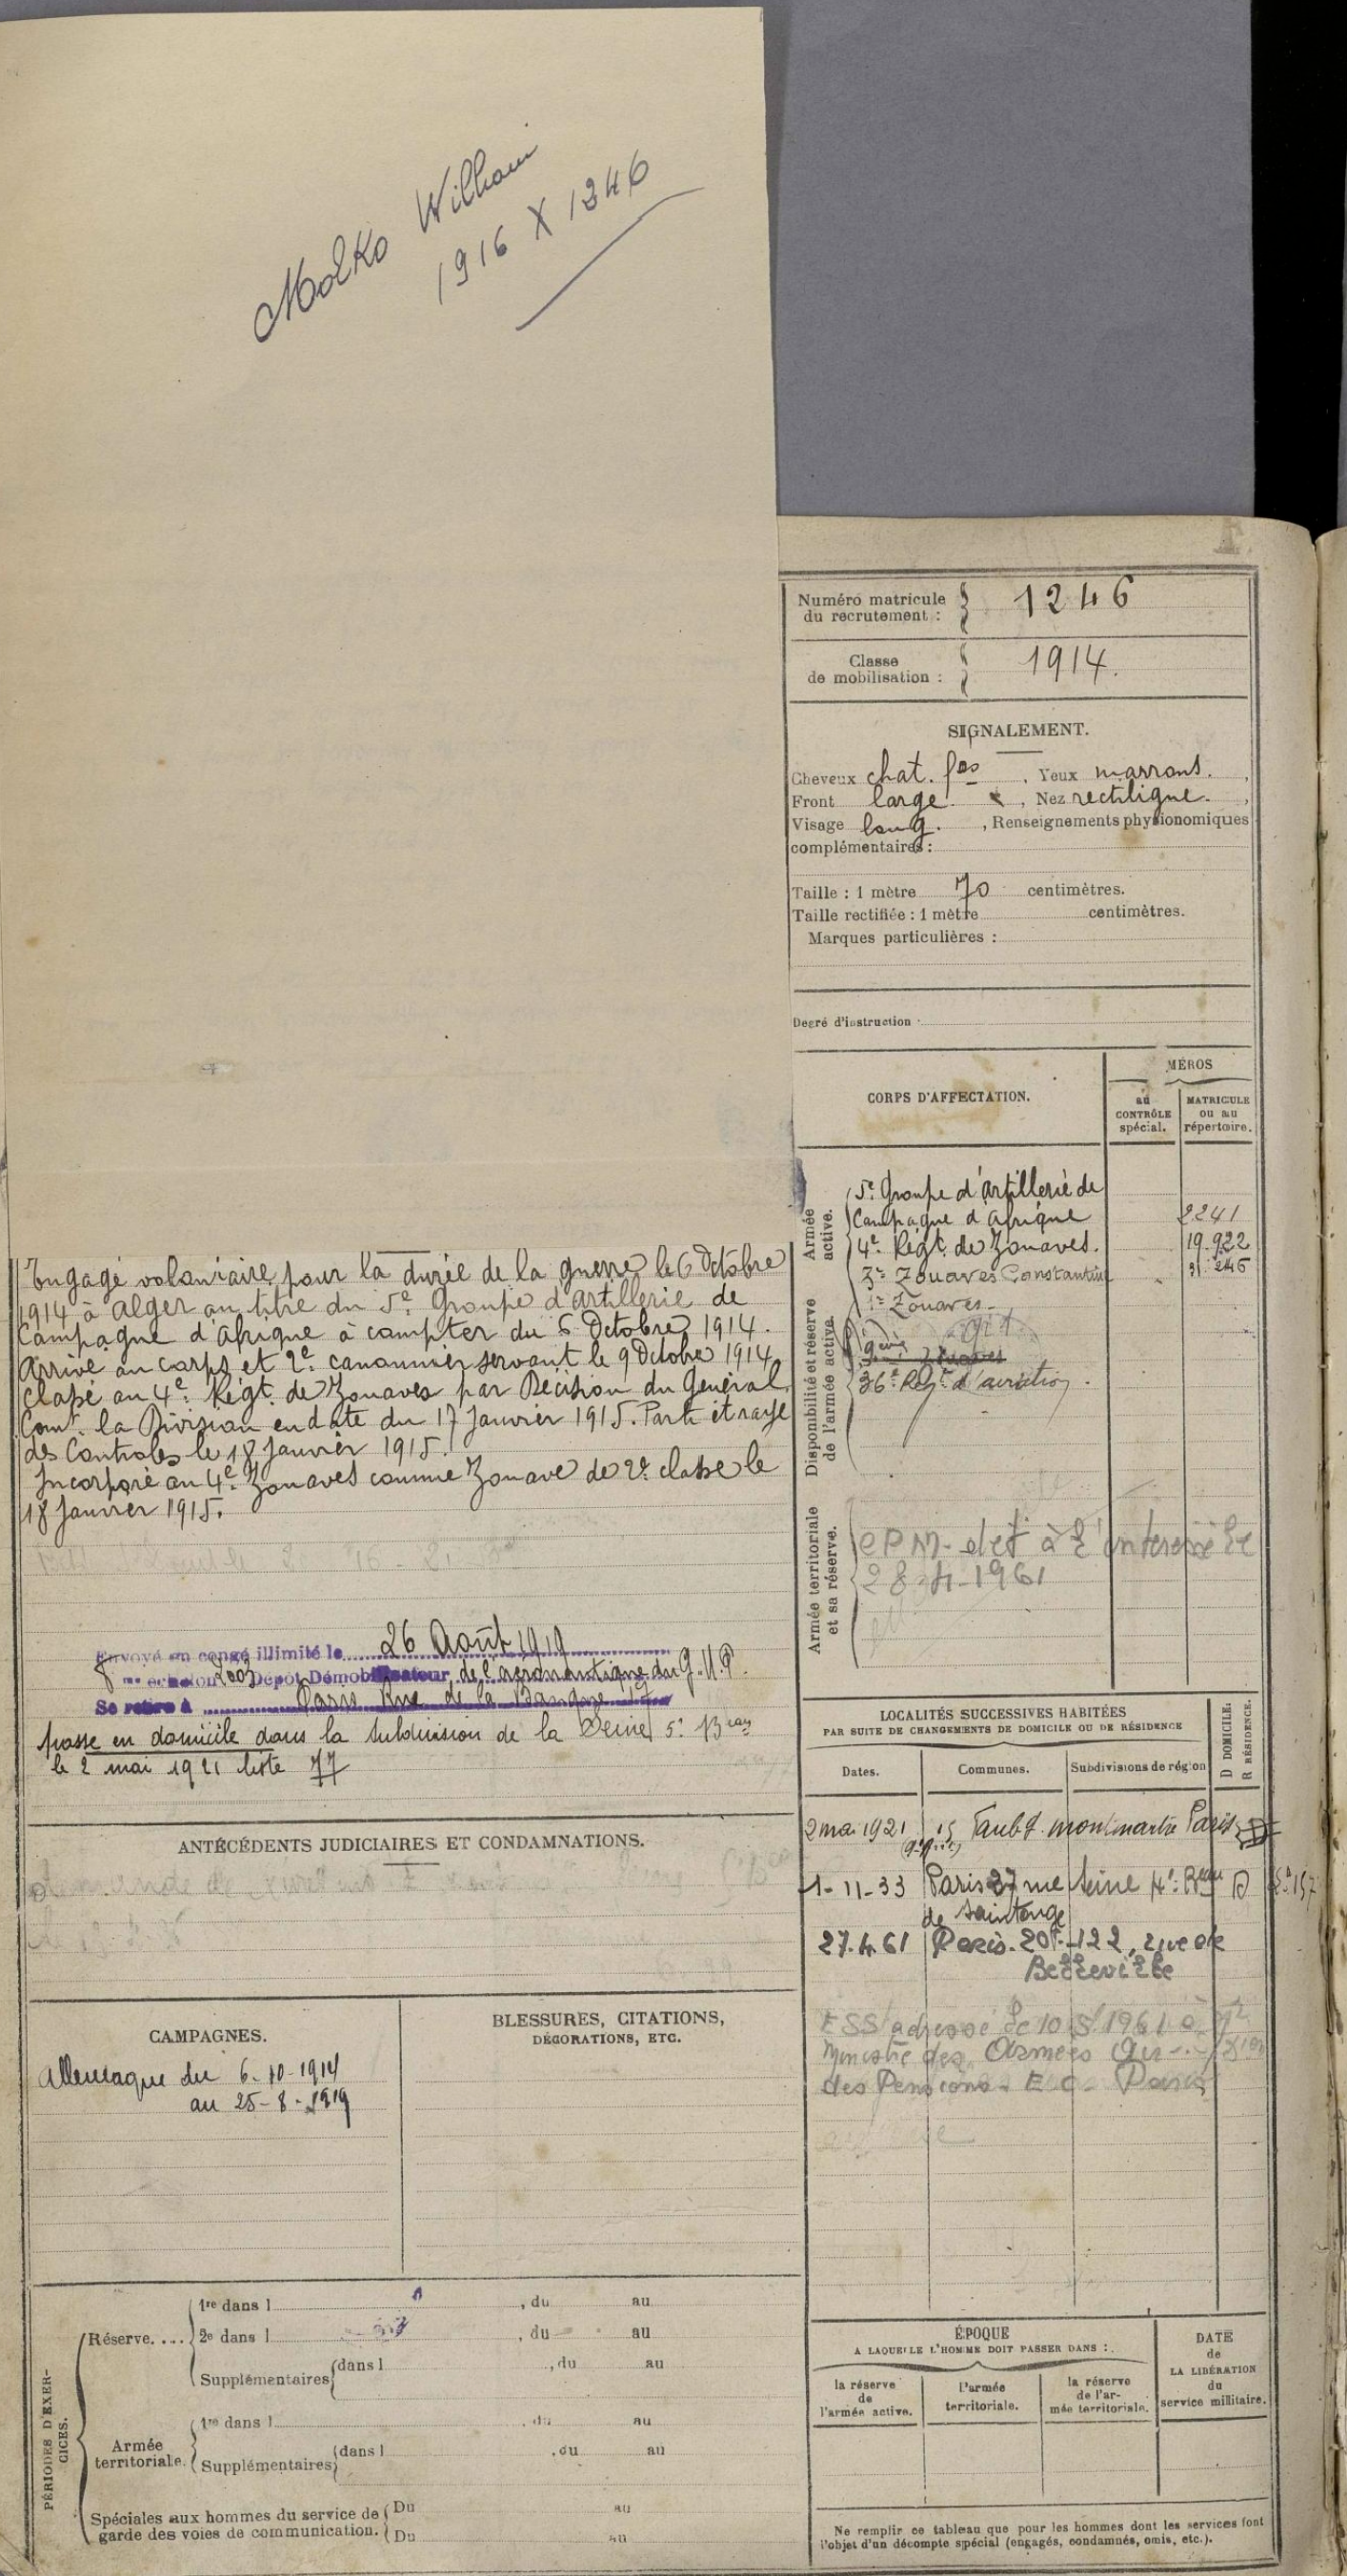 Molko William
1916 X 1246
Numéro matricule
du recrutement : 1246
Classe
de mobilisation : 1914.
SIGNALEMENT.
Cheveux chat. fcés , Yeux marrons. ,
Front large , Nez rectiligne. ,
Visage long. , Renseignements physionomiques
complémentaires :
Taille : 1 mètre 70 centimètres.
Taille rectifiée : 1 mètre centimètres.
Marques particulières :
Degré d'instruction :
CORPS D'AFFECTATION.
MÉROS
au
CONTRÔLE
spécial.
MATRICULE
ou au
répertoire.
Armée
active.
5e Groupe d'artillerie de
Campagne d'Afrique 2241
4e Régt. de Zouaves. 19.922
3e Zouaves Constantine
1er Zouaves
Disponibilité et réserve
de l'armée active.
9eme Zouaves
36e Regt d'aviation.
Armée territoriale
et sa réserve.
28-4-1961
Engagé volontaire pour la durée de la guerre le 6 Octobre
1914 à Alger au titre du 5e Groupe d'Artillerie de
Campagne d'Afrique à compter du 6 Octobre 1914.
Arrivé au corps et 2e canonnier servant le 9 Octobre 1914
Classé au 4e Régt. de Zouaves par Décision du Général
Comt. la Division en date du 17 Janvier 1915. Parti et rayé
des Controles le 18 Janvier 1915.
Incorporé au 4e Zouaves comme Zouave de 2e classe le
18 Janvier 1915.
Envoyé en congé illimité le 26 Août 1919
8 me échelon Dépot Démobilisateur de l'aéronautique du G.M.P.
Se retire à Paris Rue de la Banque 17
passe en domicile dans la subdivision de la Seine 5e Beau
le 2 mai 1921 liste 77
ANTÉCÉDENTS JUDICIAIRES ET CONDAMNATIONS.
CAMPAGNES.
Allemagne du 6-10-1914
au 25-8-1919
BLESSURES, CITATIONS,
DÉCORATIONS, ETC.
LOCALITÉS SUCCESSIVES HABITÉES
PAR SUITE DE CHANGEMENTS DE DOMICILE OU DE RÉSIDENCE
D DOMICILE.
R RÉSIDENCE.
Dates.
Communes.
Subdivisions de région
2 mai 1921 15 Faubg. montmartre Paris D
1-11-33 Paris 37 rue Seine 4e Beau D
de Saintonge
27.4.61 Paris-20e-122, rue de
Belleville
ESS adressé le 10/5/1961 à
Ministre des Armées
des Pensions - Paris
PÉRIODES D'EXER-
CICES.
Réserve....
1re dans l , du au
2e dans l , du au
Supplémentaires dans l , du au
Armée
territoriale.
1re dans l , du au
Supplémentaires dans l , du au
Spéciales aux hommes du service de
garde des voies de communication.
Du au
Du au
ÉPOQUE
A LAQUELLE L'HOMME DOIT PASSER DANS :
la réserve
de
l'armée active.
l'armée
territoriale.
la réserve
de l'ar-
mée territoriale.
DATE
de
LA LIBÉRATION
du
service militaire.
Ne remplir ce tableau que pour les hommes dont les services font
l'objet d'un décompte spécial (engagés, condamnés, omis, etc.).